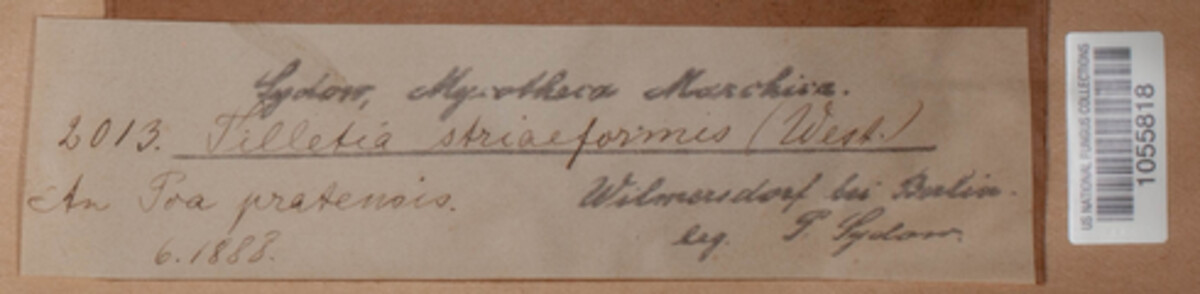 Sydow, Mycotheca Marchica.
2013. Tilletia striaeformis (West.)
An Poa pratensis.
Wilmersdorf bei Berlin.
6.1888.
leg. P. Sydow.
US NATIONAL FUNGUS COLLECTIONS
1055818